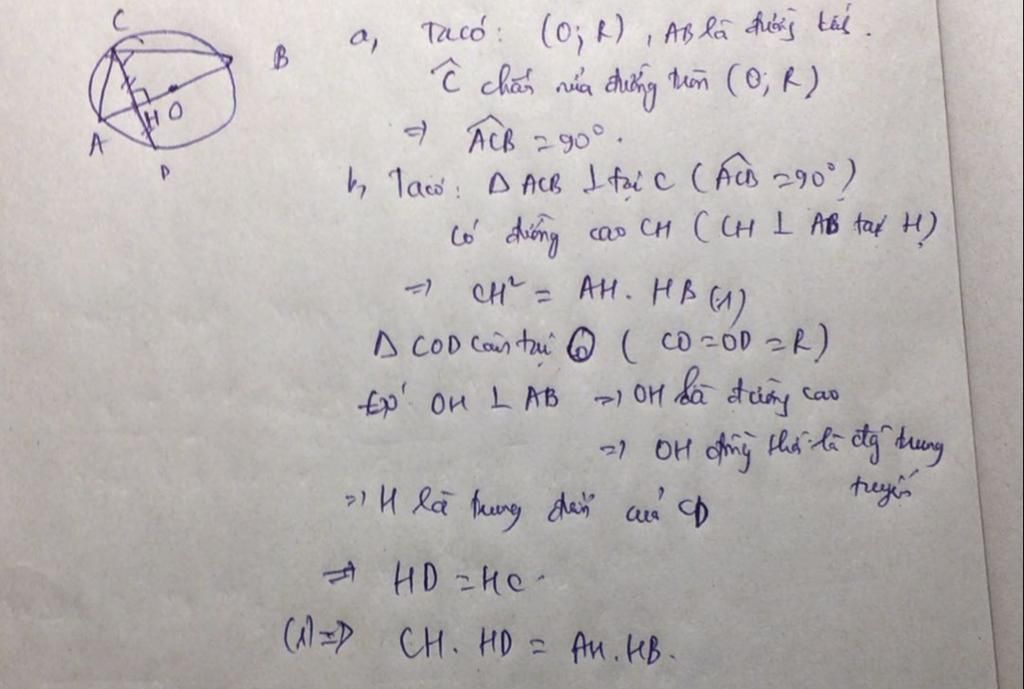 C
B
H O
A
D
a, Ta có: (O; R), AB là đường kính.
Ĉ chắn nửa đường tròn (O; R)
=> ACB = 90°.
b, Ta có: Δ ACB ⊥ tại C (ACB = 90°)
Có đường cao CH (CH ⊥ AB tại H)
=> CH² = AH. HB (1)
Δ COD cân tại O ( CO = OD = R)
OH ⊥ AB => OH là đường cao
=> OH đồng thời là đg trung
tuyến
=> H là trung điểm của CD
=> HD = HC.
(1) => CH. HD = AH. HB.